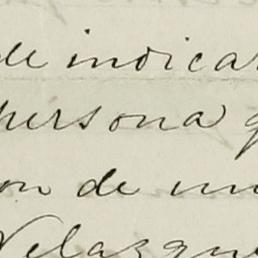 de indicar
persona q
on de un
Velazque